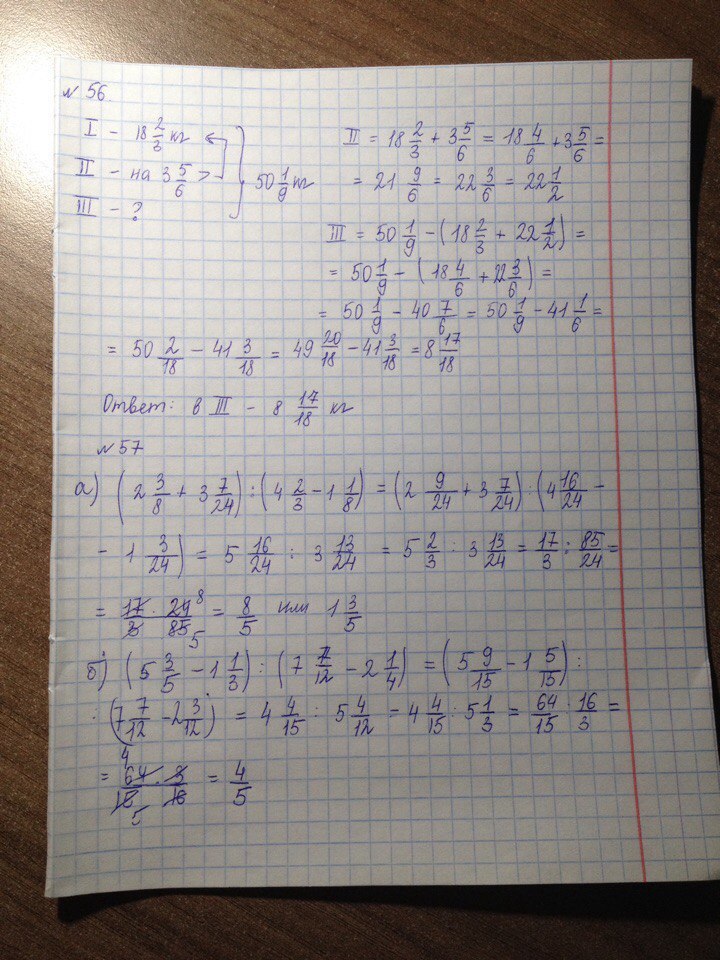 № 56.
I – 18 2/3 кг
II – на 3 5/6 >
III – ?
50 1/9 кг
II = 18 2/3 + 3 5/6 = 18 4/6 + 3 5/6 =
= 21 9/6 = 22 3/6 = 22 1/2
III = 50 1/9 – (18 2/3 + 22 1/2) =
= 50 1/9 – (18 4/6 + 22 3/6) =
= 50 1/9 – 40 7/6 = 50 1/9 – 41 1/6 =
= 50 2/18 – 41 3/18 = 49 20/18 – 41 3/18 = 8 17/18
Ответ: в III – 8 17/18 кг
№ 57
а) (2 3/8 + 3 7/24) : (4 2/3 – 1 1/8) = (2 9/24 + 3 7/24) : (4 16/24 –
– 1 3/24) = 5 16/24 : 3 13/24 = 5 2/3 : 3 13/24 = 17/3 : 85/24 =
= 17 · 24 8 / 3 85 5 = 8/5 или 1 3/5
б) (5 3/5 – 1 1/3) : (7 7/12 – 2 1/4) = (5 9/15 – 1 5/15) :
: (7 7/12 – 2 3/12) = 4 4/15 : 5 4/12 = 4 4/15 : 5 1/3 = 64/15 : 16/3 =
= 4 64 · 3 / 15 5 16 = 4/5